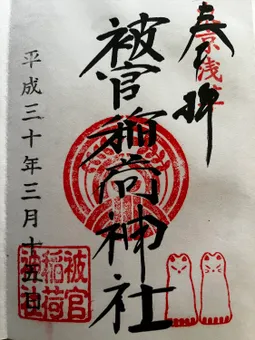 奉拝
東京浅草
被官稲荷神社
平成三十年三月十五日
被官
稲荷
神社